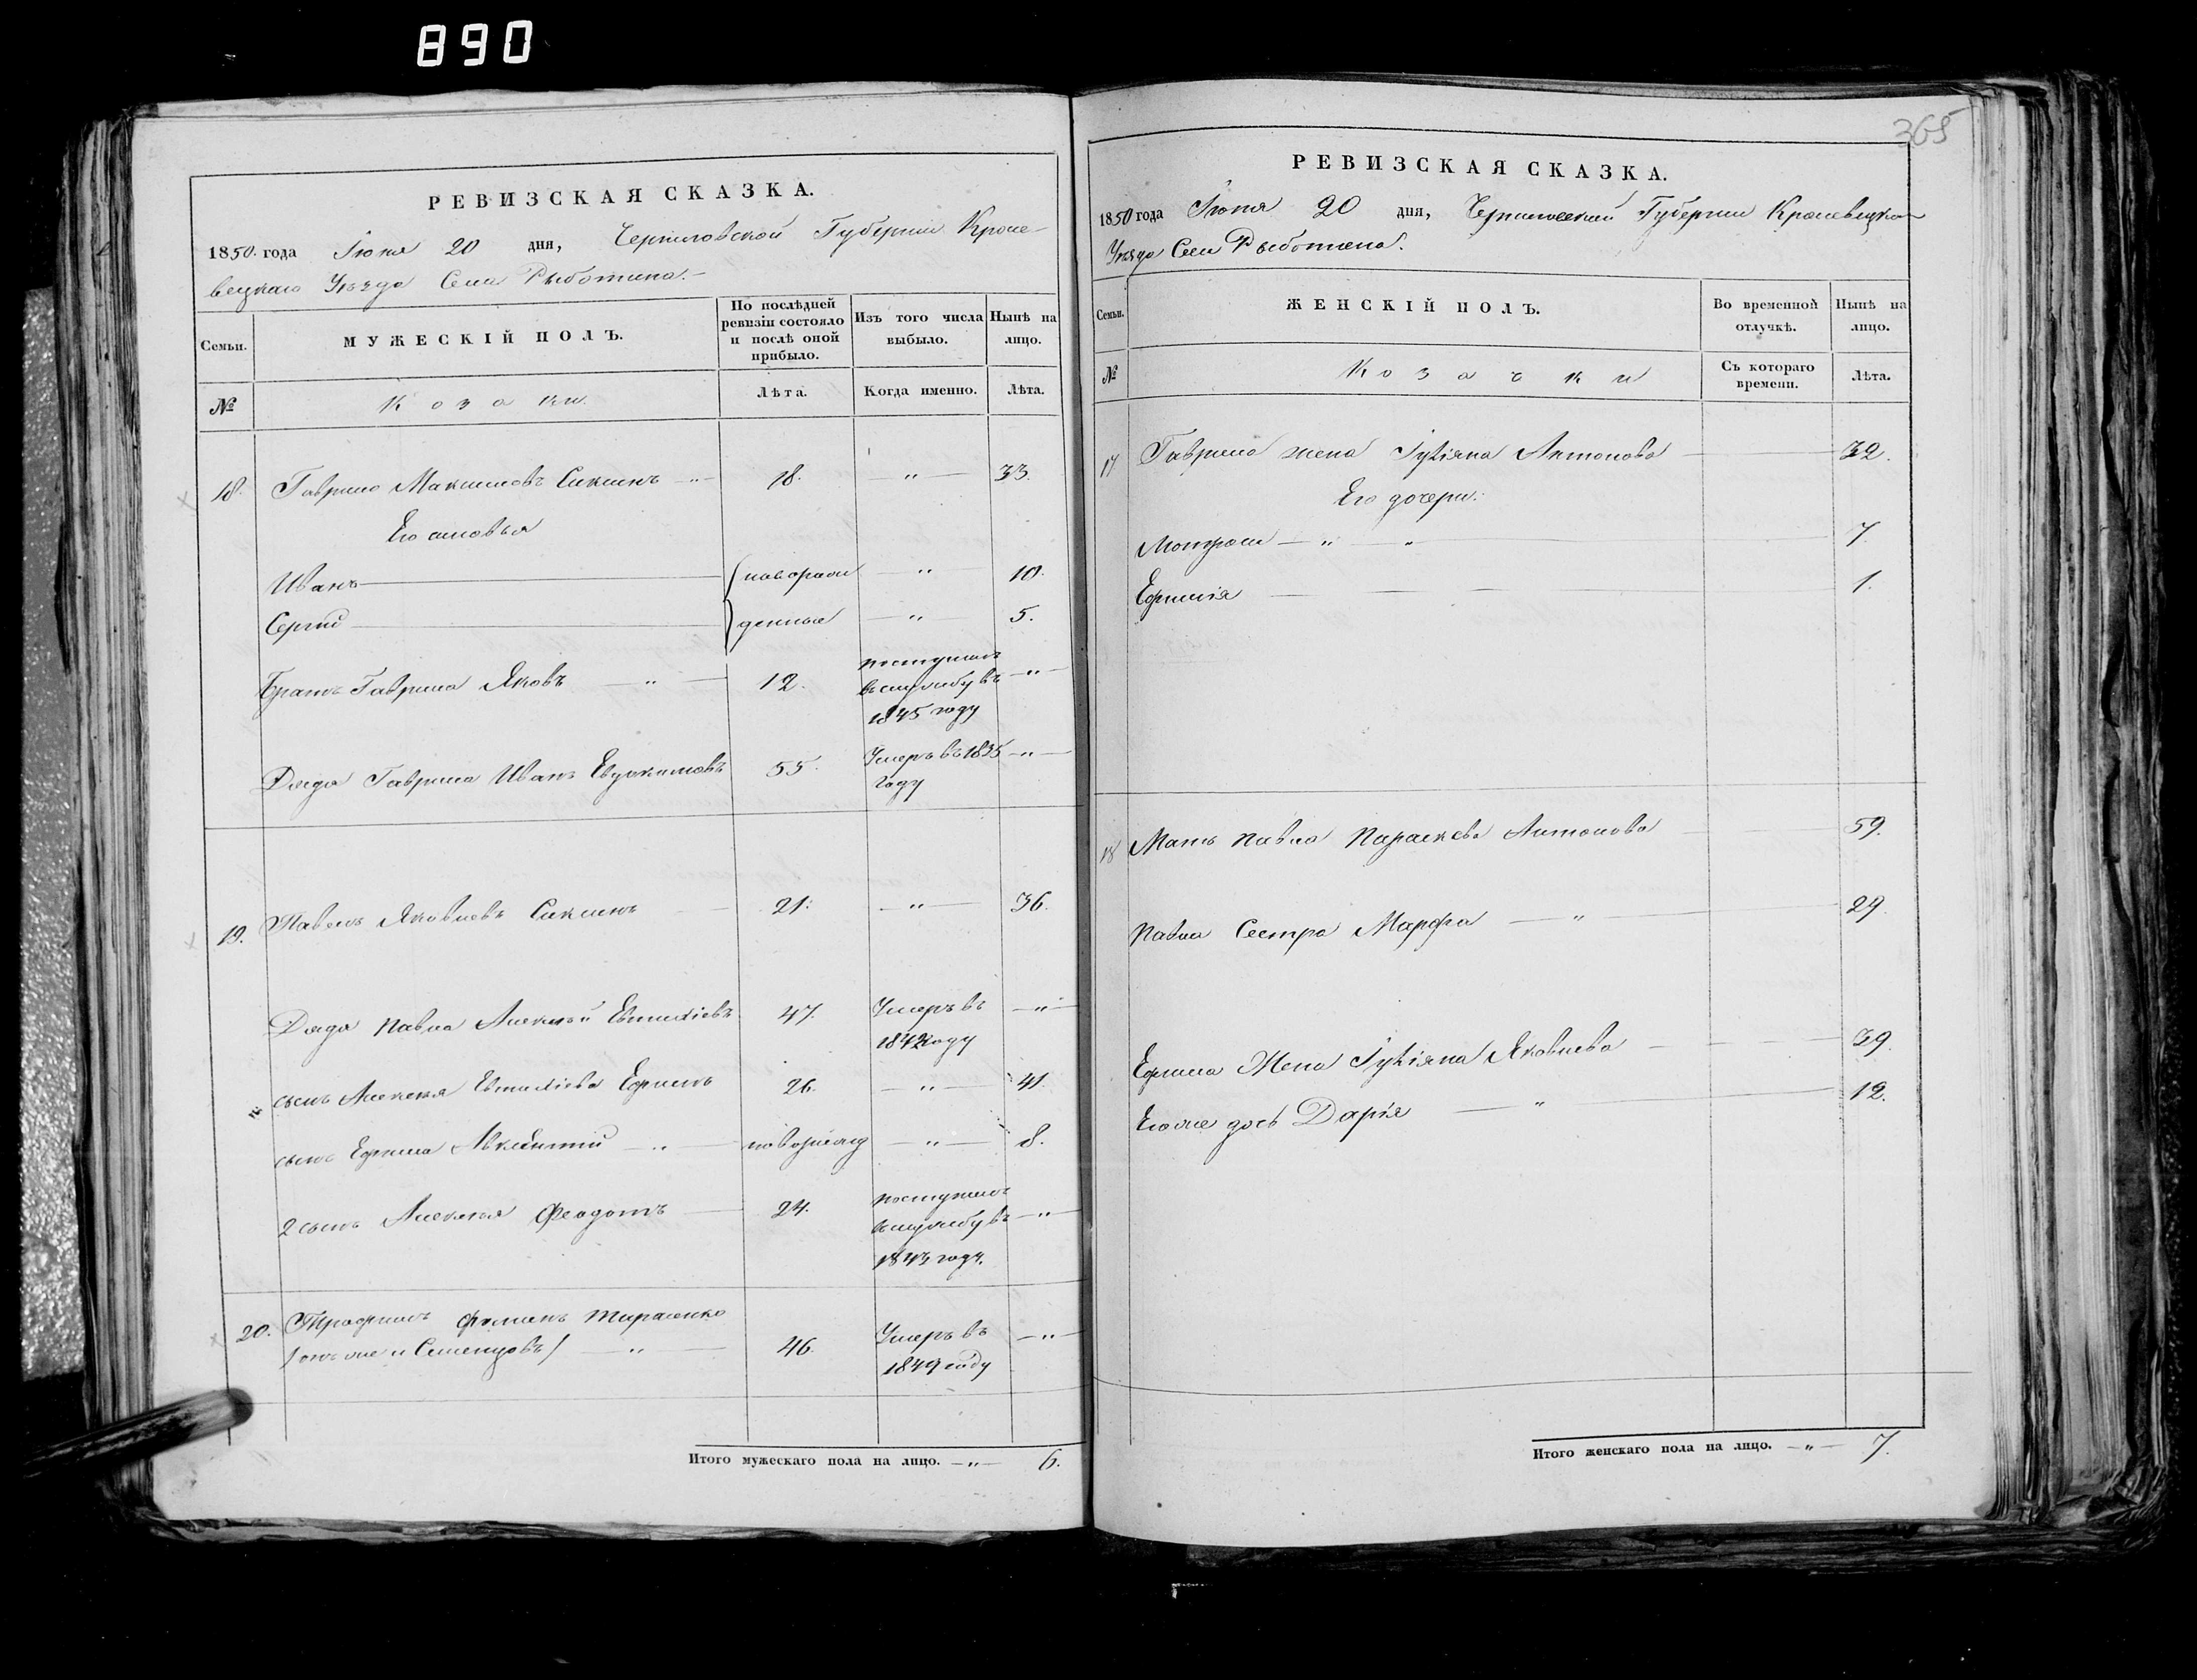 890
РЕВИЗСКАЯ СКАЗКА.
1850. года Іюня 20 дня, Черниговской Губерніи Кроле-
вецкаго Уѣзда Села Рыботина.
Семьи.
МУЖЕСКІЙ ПОЛЪ.
По послѣдней ревизіи состояло и послѣ оной прибыло.
Изъ того числа выбыло.
Нынѣ на лицо.
№
Козаки.
Лѣта.
Когда именно.
Лѣта.
18. Гаврило Максимовъ Сикинъ 18. 33.
Его сыновья
Иванъ новорож 10.
Сергій денные 5.
Братъ Гаврила Яковъ 12. поступилъ
въ службу въ
1845 году
Дядя Гаврила Иванъ Евдокимовъ 55. Умеръ въ 1835
году
19. Павелъ Яковлевъ Сикинъ 21. 36.
Дядя Павла Алексѣй Евтихіевъ 47. Умеръ въ
1842 году
сынъ Алексѣя Евтихіева Ефимъ 26. 41
сынъ Ефима новорожд 8.
2 сынъ Алексѣя Феодотъ 24. поступилъ
въ службу въ
году.
20. Трофимъ Фоминъ Тарасенко
/ онъ же и Семенцовъ / 46. Умеръ въ
1849 году
Итого мужескаго пола на лицо. 6.
365
РЕВИЗСКАЯ СКАЗКА.
1850 года Іюня 20 дня, Черниговской Губерніи Кролевецкаго
Уѣзда Села Рыботина.
Семьи.
ЖЕНСКІЙ ПОЛЪ.
Во временной отлучкѣ.
Нынѣ на лицо.
№
Козачки
Съ котораго времени.
Лѣта.
Гаврила жена Іуліяна Антонова 32.
Его дочери:
Мотрона 7
Ефимія 1.
18 Мать Павла Параскева Антонова 59.
Павла Сестра Марфа 29.
Ефима Жена Іуліяна Яковлева 39.
Его же дочь Дарія 12.
Итого женскаго пола на лицо. 7.